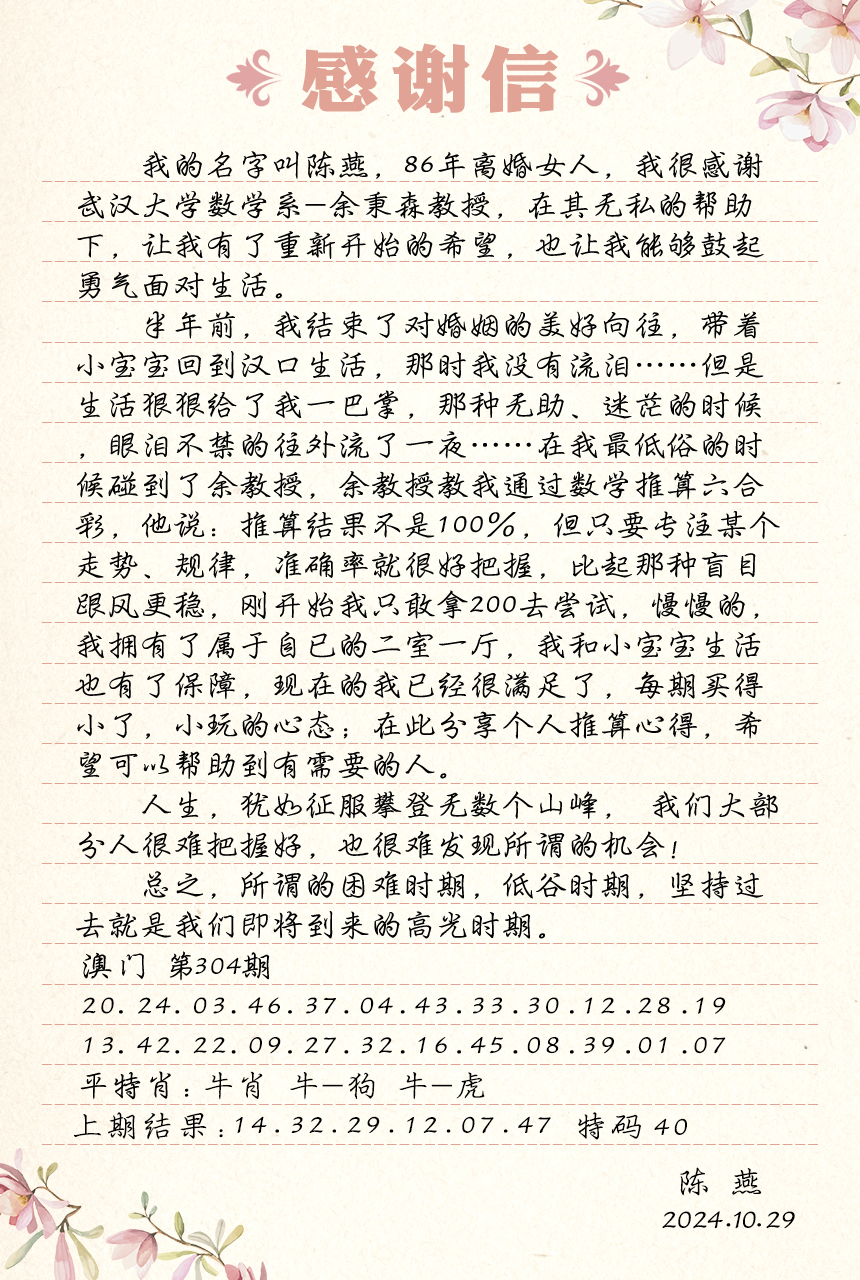 感谢信
我的名字叫陈燕，86年离婚女人，我很感谢
武汉大学数学系-余秉森教授，在其无私的帮助
下，让我有了重新开始的希望，也让我能够鼓起
勇气面对生活。
半年前，我结束了对婚姻的美好向往，带着
小宝宝回到汉口生活，那时我没有流泪……但是
生活狠狠给了我一巴掌，那种无助、迷茫的时候
，眼泪不禁的往外流了一夜……在我最低俗的时
候碰到了余教授，余教授教我通过数学推算六合
彩，他说：推算结果不是100%，但只要专注某个
走势、规律，准确率就很好把握，比起那种盲目
跟风更稳，刚开始我只敢拿200去尝试，慢慢的，
我拥有了属于自已的二室一厅，我和小宝宝生活
也有了保障，现在的我已经很满足了，每期买得
小了，小玩的心态；在此分享个人推算心得，希
望可以帮助到有需要的人。
人生，犹如征服攀登无数个山峰， 我们大部
分人很难把握好，也很难发现所谓的机会！
总之，所谓的困难时期，低谷时期，坚持过
去就是我们即将到来的高光时期。
澳门 第304期
20.24.03.46.37.04.43.33.30.12.28.19
13.42.22.09.27.32.16.45.08.39.01.07
平特肖：牛肖 牛-狗 牛-虎
上期结果：14.32.29.12.07.47 特码 40
陈 燕
2024.10.29